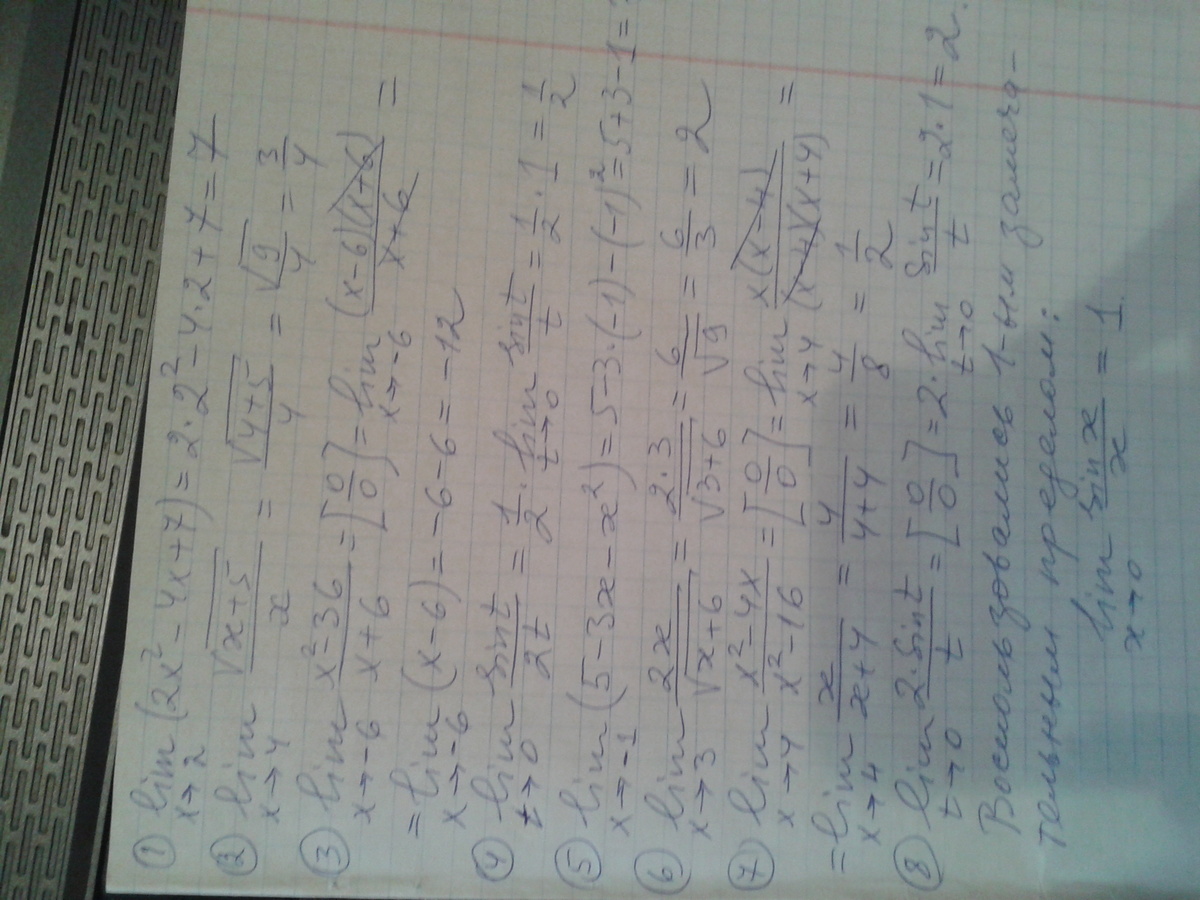 ① lim x→2 (2x² - 4x + 7) = 2·2² - 4·2 + 7 = 7
② lim x→4 √(x+5)/x = √(4+5)/4 = √9/4 = 3/4
③ lim x→-6 (x²-36)/(x+6) = [0/0] = lim x→-6 (x-6)(x+6)/(x+6) =
= lim x→-6 (x-6) = -6-6 = -12
④ lim t→0 sin t/2t = 1/2 · lim t→0 sin t/t = 1/2 · 1 = 1/2
⑤ lim x→-1 (5-3x-x²) = 5-3·(-1)-(-1)² = 5+3-1 =
⑥ lim x→3 2x/√(x+6) = 2·3/√(3+6) = 6/√9 = 6/3 = 2
⑦ lim x→4 (x²-4x)/(x²-16) = [0/0] = lim x→4 x(x-4)/(x-4)(x+4) =
= lim x→4 x/(x+4) = 4/(4+4) = 4/8 = 1/2
⑧ lim t→0 2·sin t/t = [0/0] = 2·lim t→0 sin t/t = 2·1 = 2.
Воспользовались 1-ым замеча-
тельным пределом:
lim x→0 sin x/x = 1.